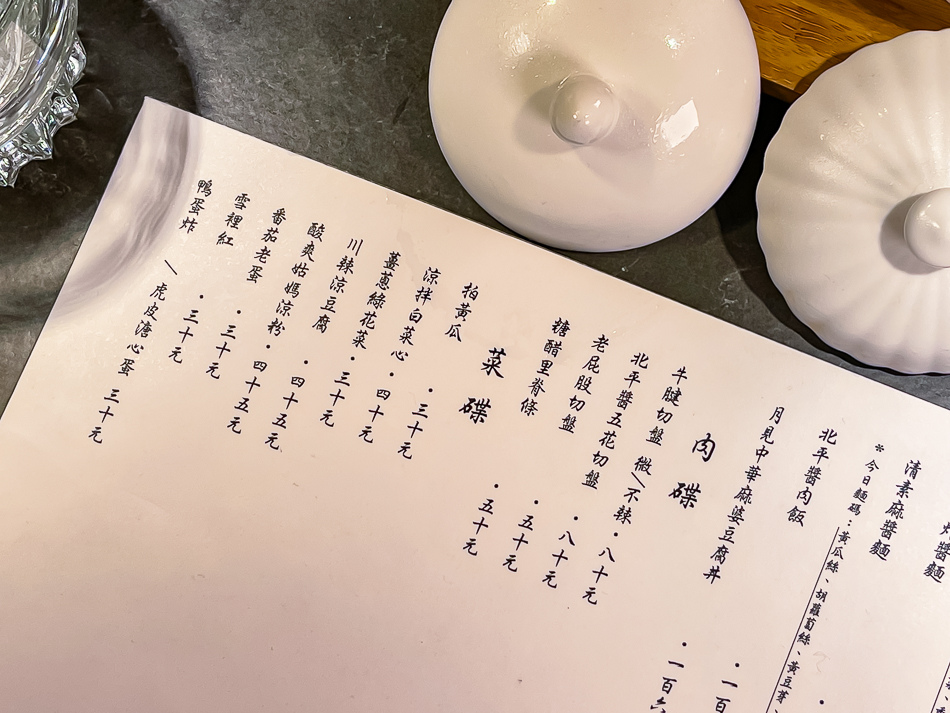 醬麵
清素麻醬麵
* 今日麵碼：黃瓜絲、胡蘿蔔絲、黃豆芽、
北平醬肉飯 ・一百
月見中華麻婆豆腐丼 ・一百六
肉碟
牛腱切盤 微\不辣・八十元
北平醬五花切盤・八十元
老屁股切盤・五十元
糖醋里脊條・五十元
菜碟
拍黃瓜・三十元
涼拌白菜心・四十元
薑蔥綠花菜・三十元
川辣涼豆腐・四十五元
酸爽姑媽涼粉・四十五元
番茄老蛋・三十元
雪裡紅・三十元
鴨蛋炸 \ 虎皮溏心蛋 三十元